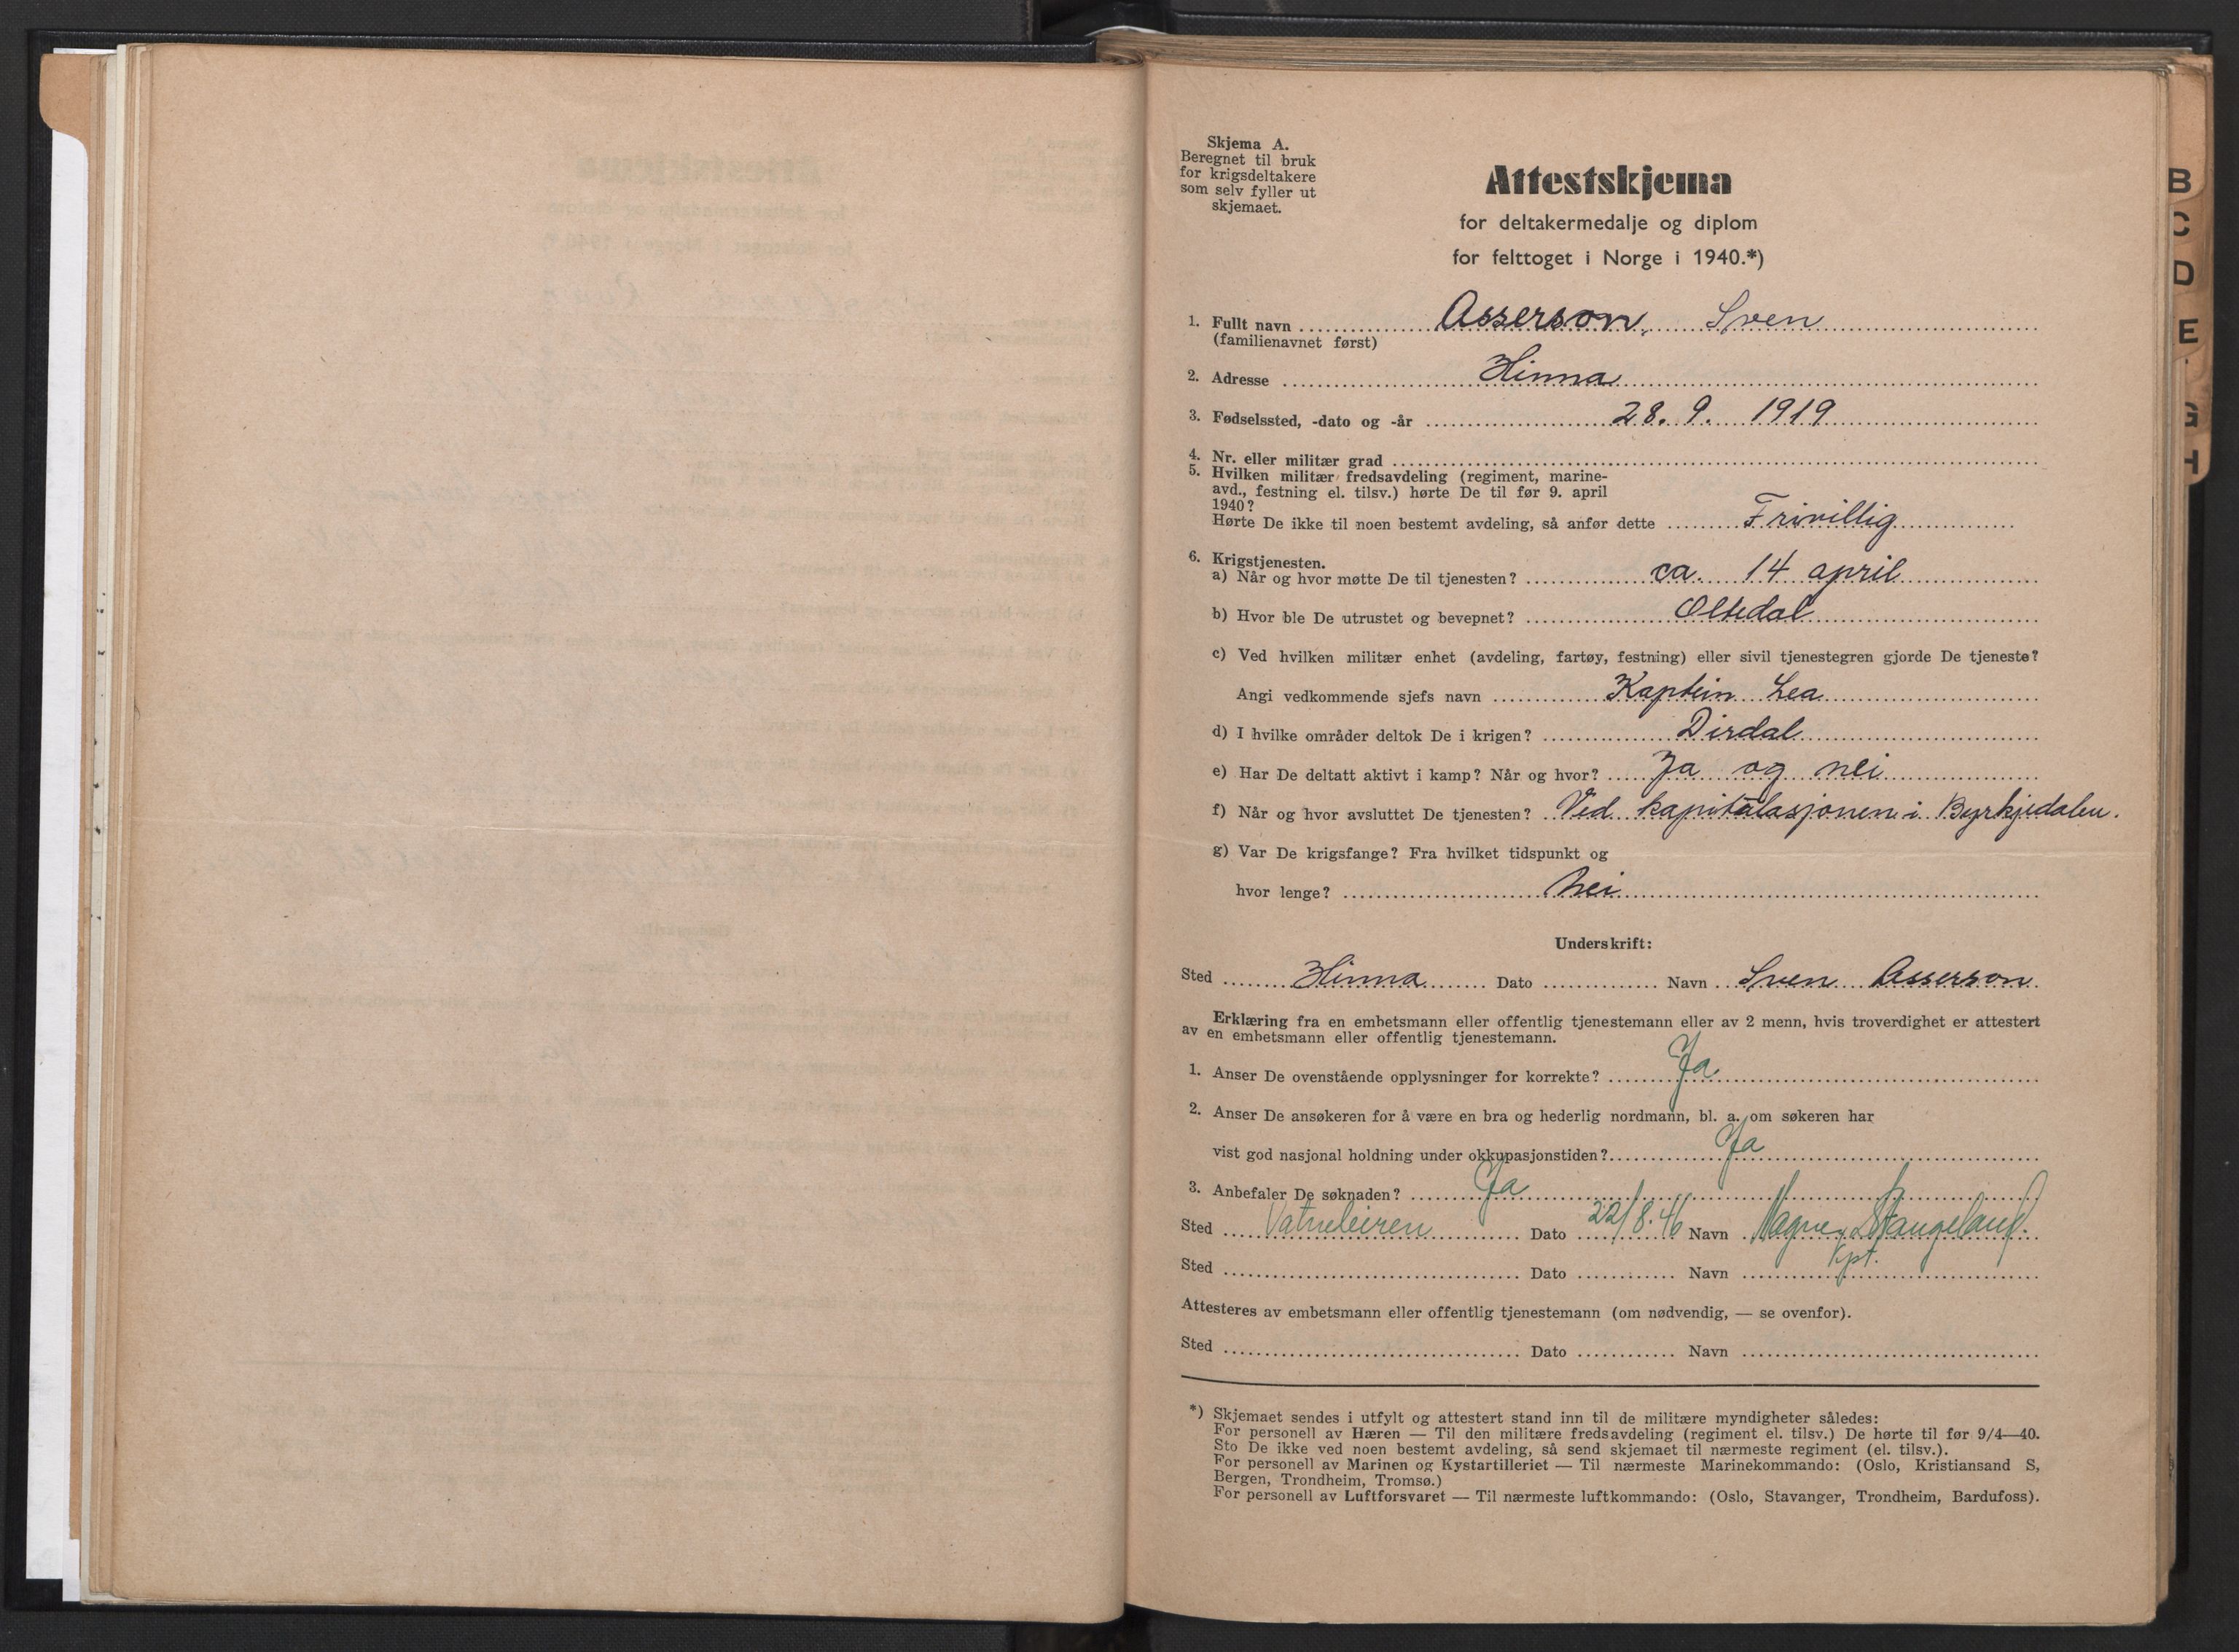 Skjema A.
Beregnet til bruk
for krigsdeltakere
som selv fyller ut
skjemaet.
Attestskjema
for deltakermedalje og diplom
for felttoget i Norge i 1940.*)
1. Fullt navn Asserson, Sven
(familienavnet først)
2. Adresse Hinna
3. Fødselssted, -dato og -år 28. 9. 1919
4. Nr. eller militær grad
5. Hvilken militær fredsavdeling (regiment, marine-
avd., festning el. tilsv.) hørte De til før 9. april
1940?
Hørte De ikke til noen bestemt avdeling, så anfør dette Frivillig
6. Krigstjenesten.
a) Når og hvor møtte De til tjenesten? ca. 14 april
b) Hvor ble De utrustet og bevepnet? Oltedal
c) Ved hvilken militær enhet (avdeling, fartøy, festning) eller sivil tjenestegren gjorde De tjeneste?
Angi vedkommende sjefs navn Kaptein Lea
d) I hvilke områder deltok De i krigen? Dirdal
e) Har De deltatt aktivt i kamp? Når og hvor? Ja og nei
f) Når og hvor avsluttet De tjenesten? Ved kapitulasjonen i Byrkjedalen.
g) Var De krigsfange? Fra hvilket tidspunkt og
hvor lenge? Nei
Underskrift:
Sted Hinna Dato Navn Sven Asserson
Erklæring fra en embetsmann eller offentlig tjenestemann eller av 2 menn, hvis troverdighet er attestert
av en embetsmann eller offentlig tjenestemann.
1. Anser De ovenstående opplysninger for korrekte? Ja
2. Anser De ansøkeren for å være en bra og hederlig nordmann, bl. a. om søkeren har
vist god nasjonal holdning under okkupasjonstiden? Ja
3. Anbefaler De søknaden? Ja
Sted Vatneleiren Dato 22/8.46 Navn Magne Stangeland.
Kpt.
Sted Dato Navn
Attesteres av embetsmann eller offentlig tjenestemann (om nødvendig, — se ovenfor).
Sted Dato Navn
*) Skjemaet sendes i utfylt og attestert stand inn til de militære myndigheter således:
For personell av Hæren — Til den militære fredsavdeling (regiment el. tilsv.) De hørte til før 9/4—40.
Sto De ikke ved noen bestemt avdeling, så send skjemaet til nærmeste regiment (el. tilsv.).
For personell av Marinen og Kystartilleriet — Til nærmeste Marinekommando: (Oslo, Kristiansand S,
Bergen, Trondheim, Tromsø.)
For personell av Luftforsvaret — Til nærmeste luftkommando: (Oslo, Stavanger, Trondheim, Bardufoss).
B
C
D
E
G
H